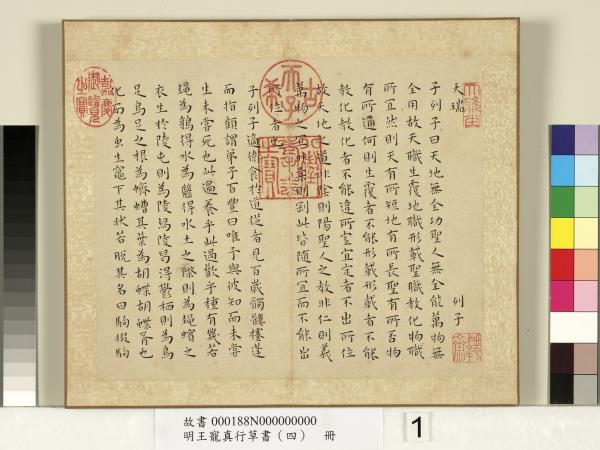 天瑞　列子
子列子曰天地無全功聖人無全能萬物無
全用故天職生覆地職形載聖職教化物職
所宜然則天有所短地有所長聖有所否物
有所通何則生覆者不能形載形載者不能
教化教化者不能違所宜宜定者不出所位
故天地之道非陰則陽聖人之教非仁則義
萬物之宜非柔則剛此皆隨所宜而不能出
所位者也
子列子適衛食於道從者見百歲髑髏攓蓬
而指顧謂弟子百豐曰唯予與彼知而未嘗
生未嘗死也此過養乎此過歡乎種有幾若
蠅為鶉得水為得水土之際則為蠅蠙之
衣生於陵屯則為陵舄陵舄得鬱栖則為烏
足烏足之根為蠐螬其葉為胡蝶胡蝶胥也
化而為虫生竈下其狀若脫其名曰駒掇駒
嘉慶御覽之寶
古希天子
故書 000188N000000000
明王寵真行草書（四） 冊
1